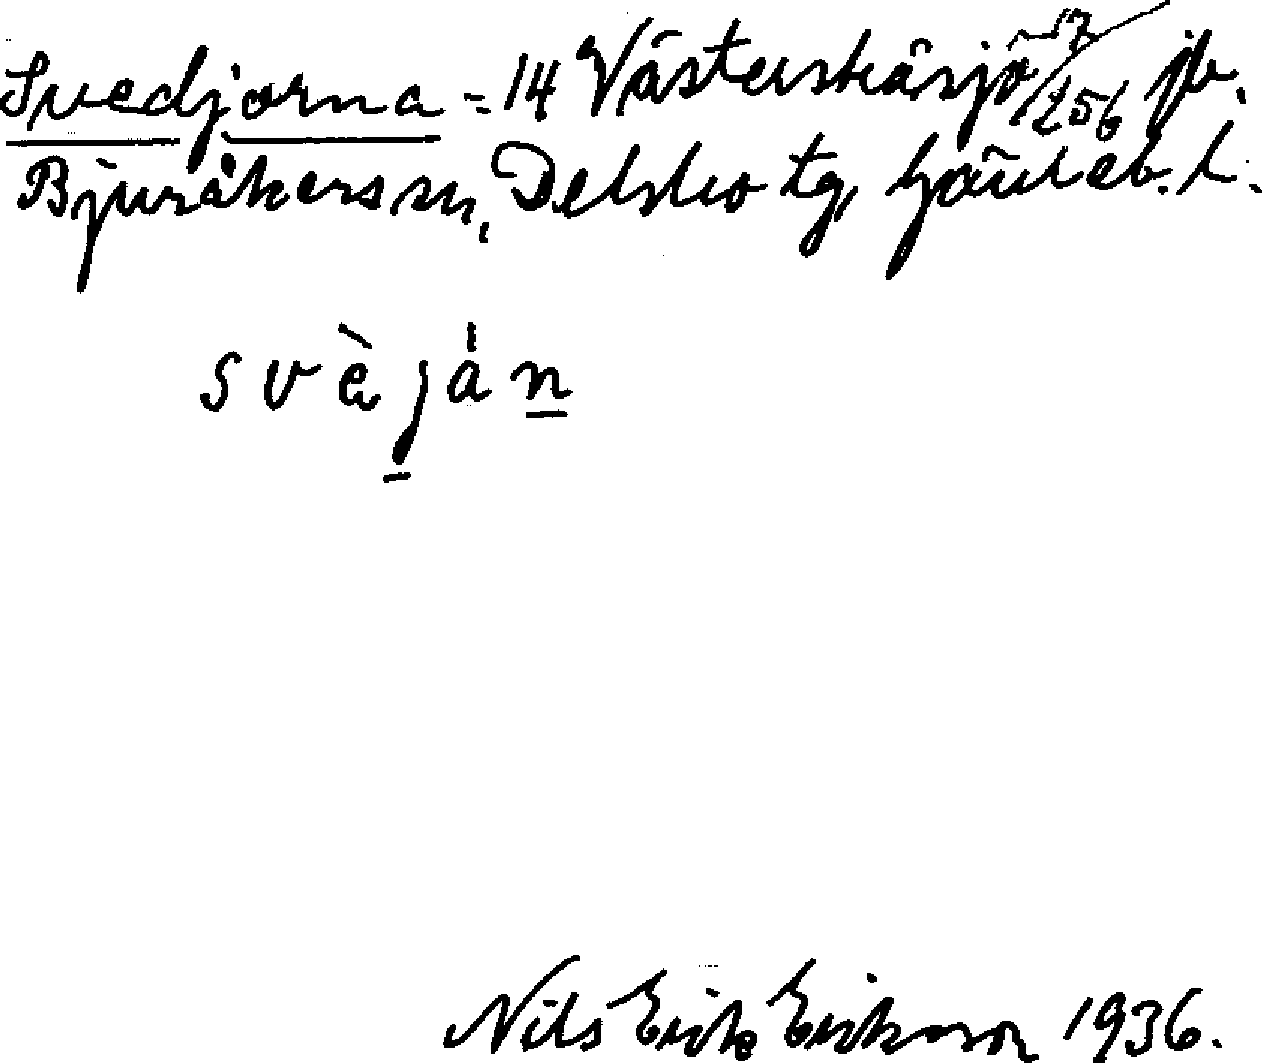 Svedjorna = 14 Västerskåsjö 17/256 jb.
Bjuråkers sn, Delsbo tg, Gävleb. l.
svèján
Nils Erik Erikson 1936.